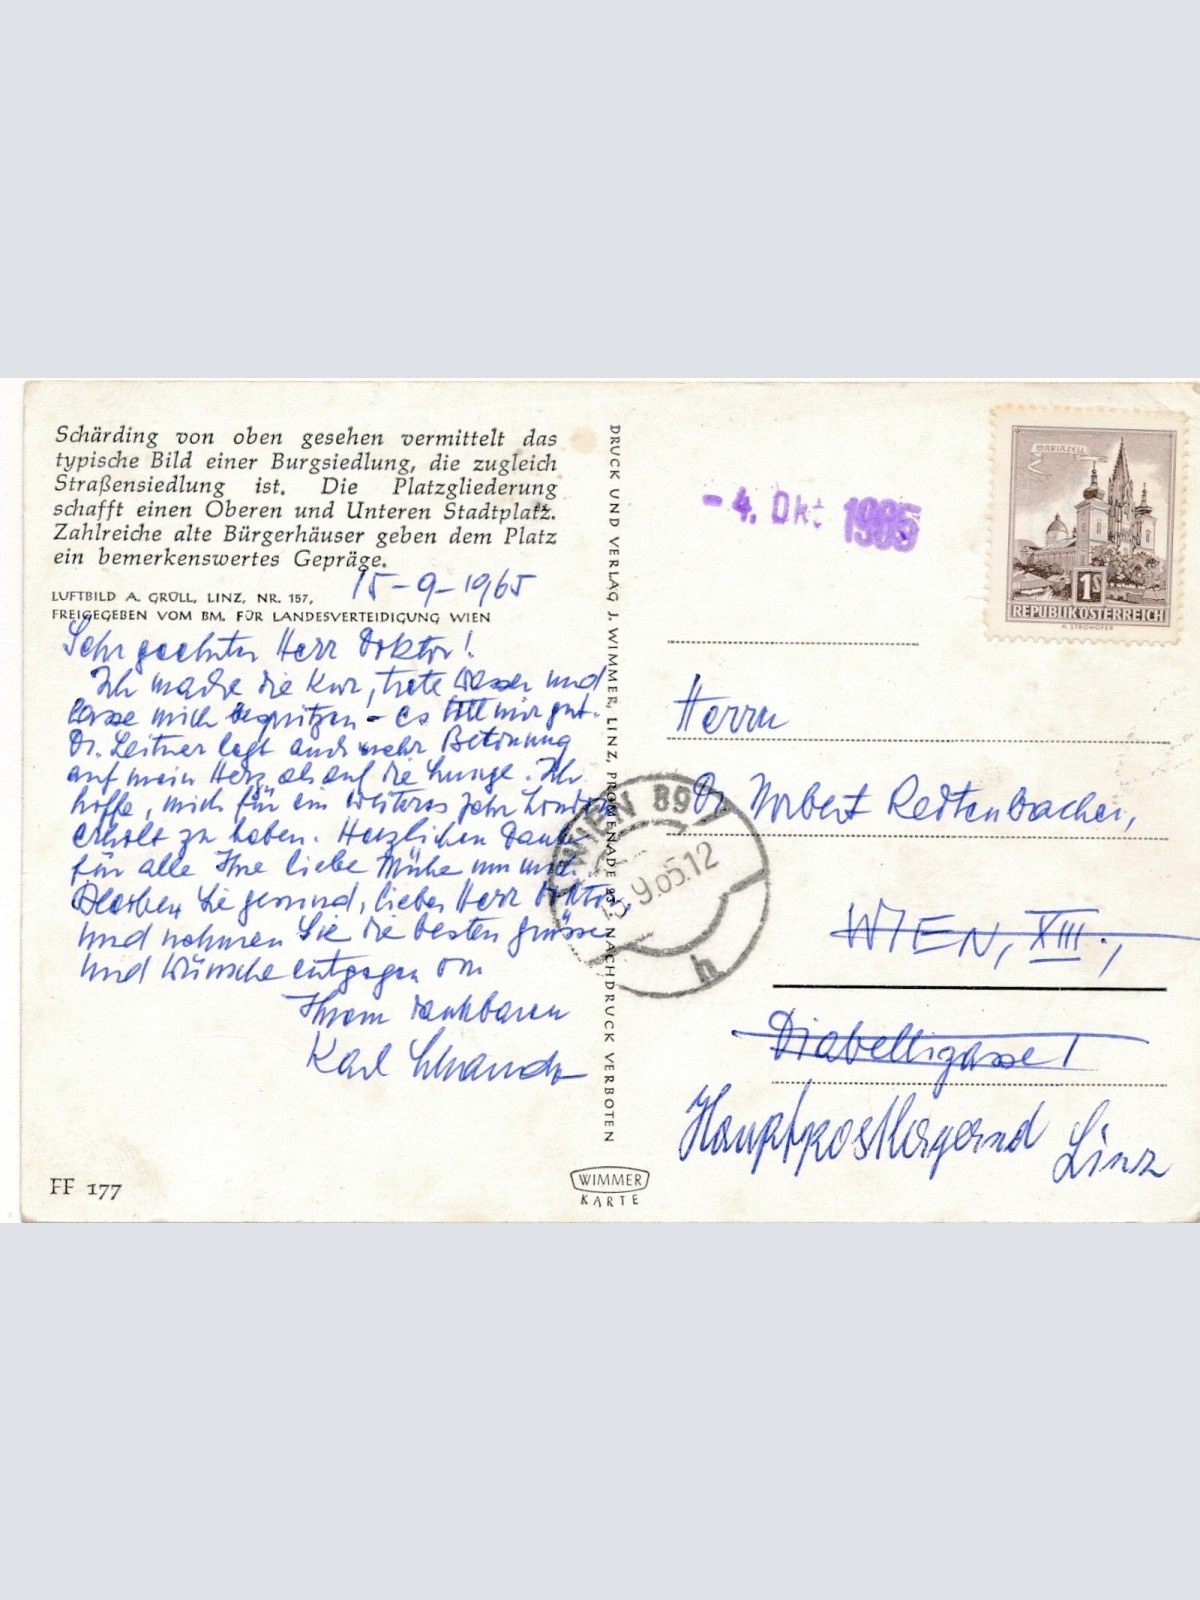 Schärding von oben gesehen vermittelt das
typische Bild einer Burgsiedlung, die zugleich
Straßensiedlung ist. Die Platzgliederung
schafft einen Oberen und Unteren Stadtplatz.
Zahlreiche alte Bürgerhäuser geben dem Platz
ein bemerkenswertes Gepräge.
15-9-1965
LUFTBILD A. GRÜLL, LINZ, NR. 157,
FREIGEGEBEN VOM BM. FÜR LANDESVERTEIDIGUNG WIEN
Sehr geehrter Herr Doktor!
Ich mache die Kur, trete Wasser und
lasse mich bespritzen - es tut mir gut.
Dr. Leitner legt auch mehr Betonung
auf mein Herz als auf die Lunge. Ich
hoffe, mich für ein weiteres Jahr
erholt zu haben. Herzlichen Dank
für alle Ihre liebe Mühe um mich.
Bleiben Sie gesund, lieber Herr Doktor,
und nehmen Sie die besten Grüsse
und Wünsche entgegen von
Ihrem dankbaren
Karl
FF 177
DRUCK UND VERLAG J. WIMMER, LINZ, PROMENADE 23, NACHDRUCK VERBOTEN
WIMMER
KARTE
- 4. Okt 1965
MARIAZELL
1S
REPUBLIK ÖSTERREICH
H. STROHOFER
WIEN 89
9.65.12
h
Herrn
Dr. Norbert Redtenbacher,
WIEN, XIII.,
Diabelligasse 1
Hauptpostlagernd Linz